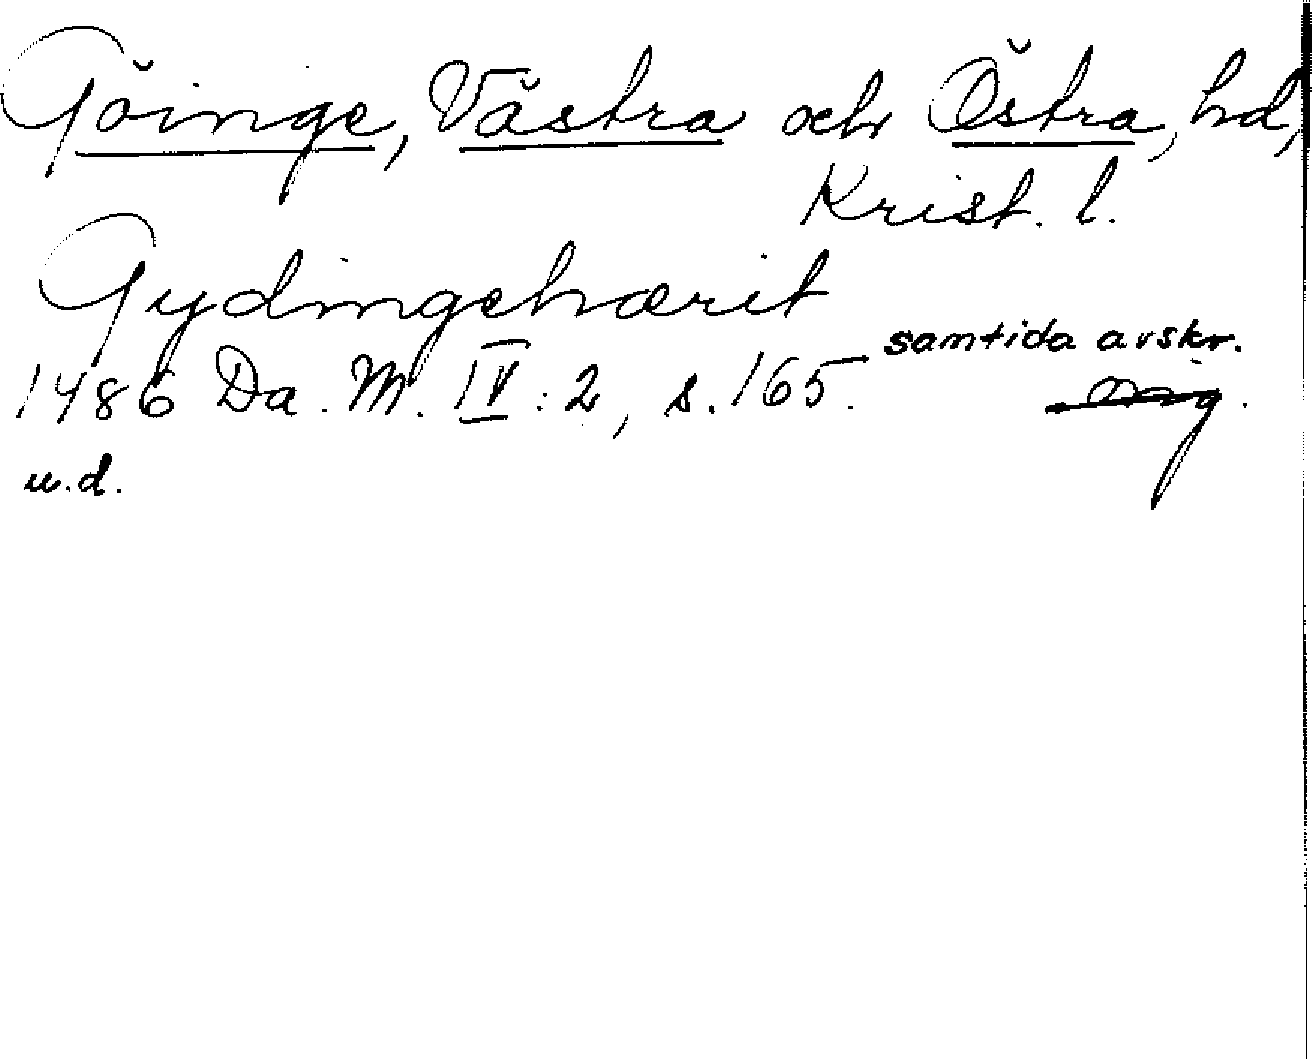 Göinge, Västra och Östra, hd,
Krist. l.
Gydingehærit
samtida avskr.
1486 Da. M. IV:2, s. 165. orig.
u.d.